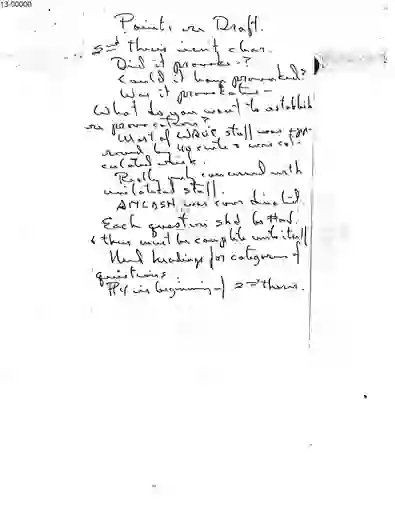 13-00000
Points re Draft.
2nd thesis isn't clear.
Did it provoke - ?
Could it have provoked?
Was it provocation -
What do you want to establish
re provocation?
Most of WAVE stuff was
round by & was cal-
culated risk.
Really only concerned with
unilateral stuff.
AMLASH was coordinated.
Each question shd be
& thus must be complete unto itself
Need headings for categories of
questions
#4 is beginning of 2nd thesis.